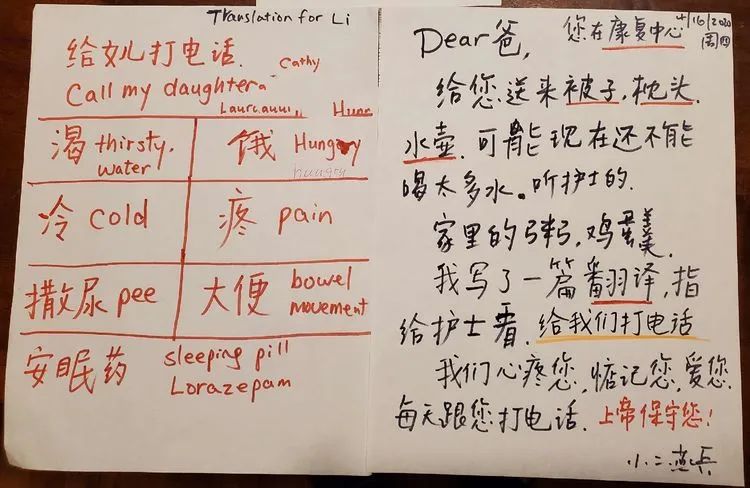 Translation for Li
给女儿打电话. Cathy
Call my daughter
渴 thirsty. water
饿 Hungry
hungry
冷 cold
疼 pain
撒尿 pee
大便 bowel movement
安眠药 sleeping pill
Lorazepam
您在康复中心 4/16/2020
周四
Dear爸,
给您送来被子,枕头.
水壶.可能现在还不能
喝太多水。听护士的.
家里的粥,鸡蛋羹.
我写了一篇翻译,指
给护士看.给我们打电话
我们心疼您,惦记您,爱您.
每天跟您打电话.上帝保守您!
小二燕兵